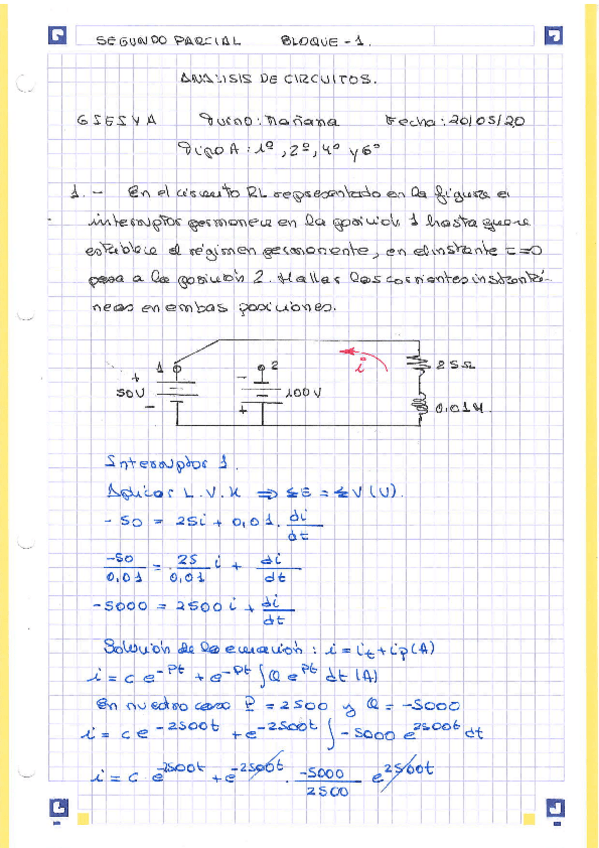 SEGUNDO PARCIAL BLOQUE - 1.
ANALISIS DE CIRCUITOS.
GIEIYA Turno: Mañana Fecha: 20/05/20
Tipo A: 1º, 2º, 4º y 6º
1. - En el circuito RL representado en la figura el
interruptor permanece en la posición 1 hasta que se
establece el régimen permanente, en el instante t=0
pasa a la posición 2. Hallar las corrientes instantá-
neas en ambas posiciones.
1 2 i 25Ω
+ -
50V 100V
- + 0,01H.
Interruptor 1.
Aplicar L.V.K ⇒ ΣE = ΣV (V).
-50 = 25i + 0,01. di/dt
-50/0,01 = 25/0,01 i + di/dt
-5000 = 2500 i + di/dt
Solución de la ecuación: i = it + ip (A)
i = c e^-Pt + e^-Pt ∫ Q e^Pt dt (A)
En nuestro caso P = 2500 y Q = -5000
i = c e^-2500t + e^-2500t ∫ -5000 e^2500t dt
i = c e^-2500t + e^-2500t . -5000/2500 e^2500t